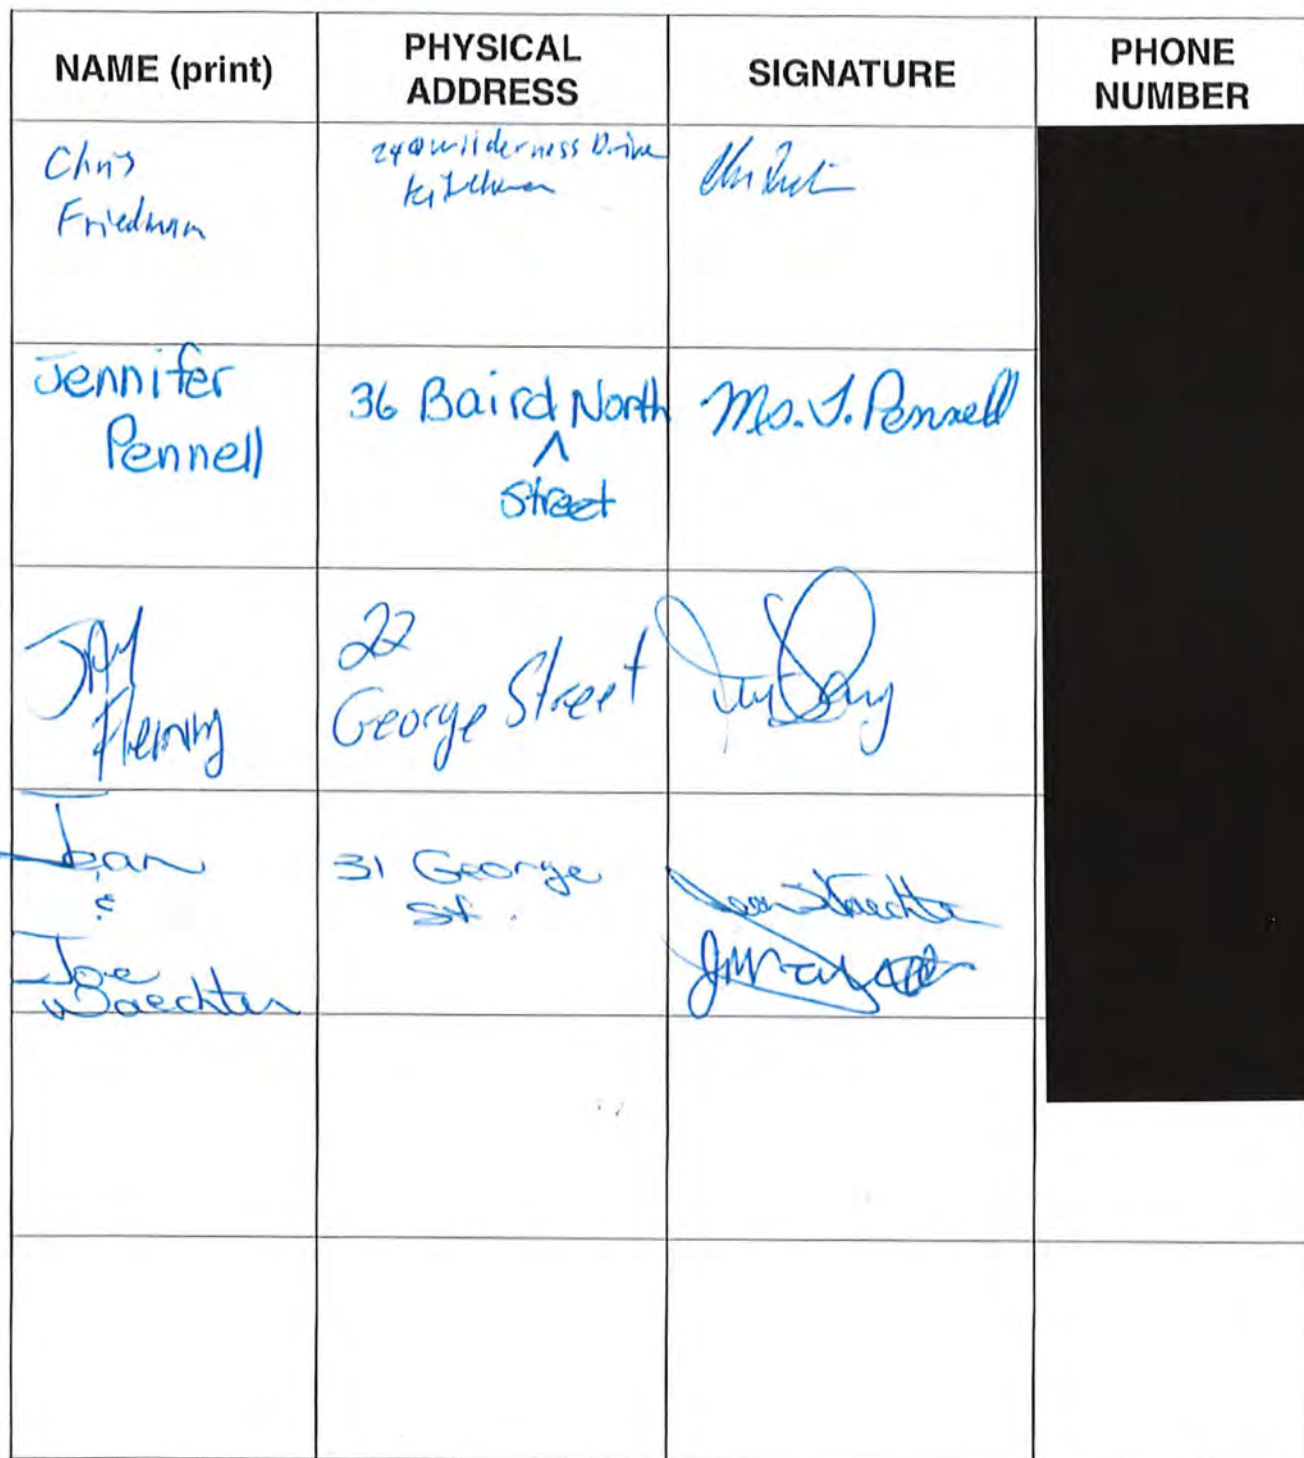 NAME (print)
PHYSICAL
ADDRESS
SIGNATURE
PHONE
NUMBER
Chris
Friedman
240 wilderness Drive
Kitchener
Jennifer
Pennell
36 Baird North
^
Street
Ms. J. Pennell
JAY
Fleming
22
George Street
Joan
&
Joe
Waechter
31 George
St.
Joan Waechter